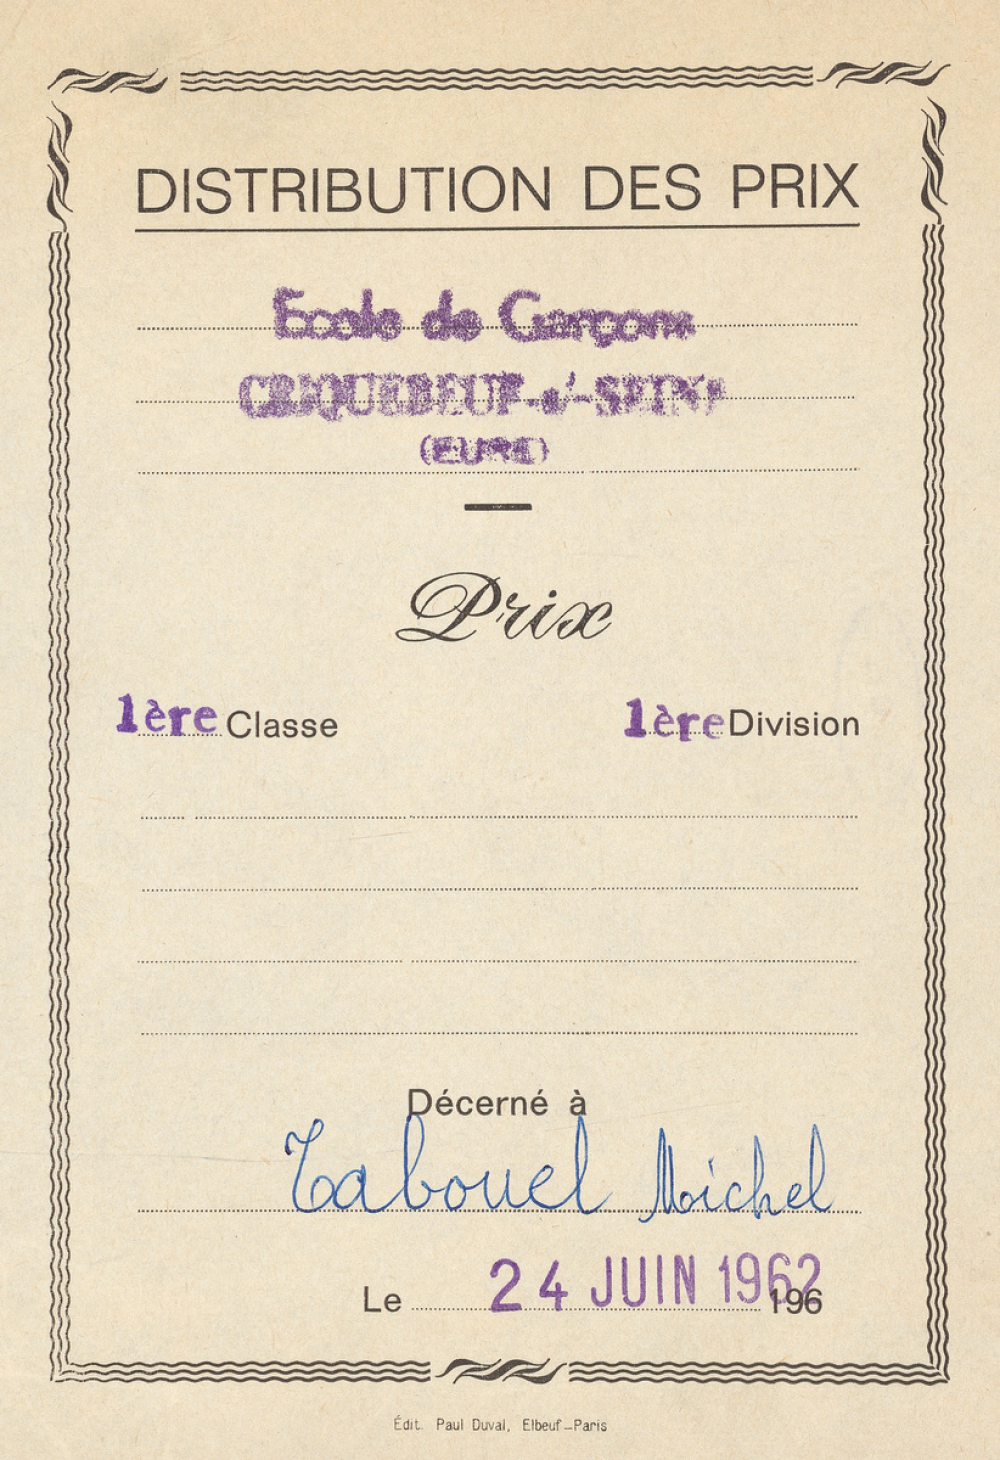 DISTRIBUTION DES PRIX
Ecole de Garçons
CRIQUEBEUF-s/-SEINE
(EURE)
Prix
1ère Classe 1ère Division
Décerné à
Tabouel Michel
Le 24 JUIN 1962 196
Édit. Paul Duval, Elbeuf-Paris